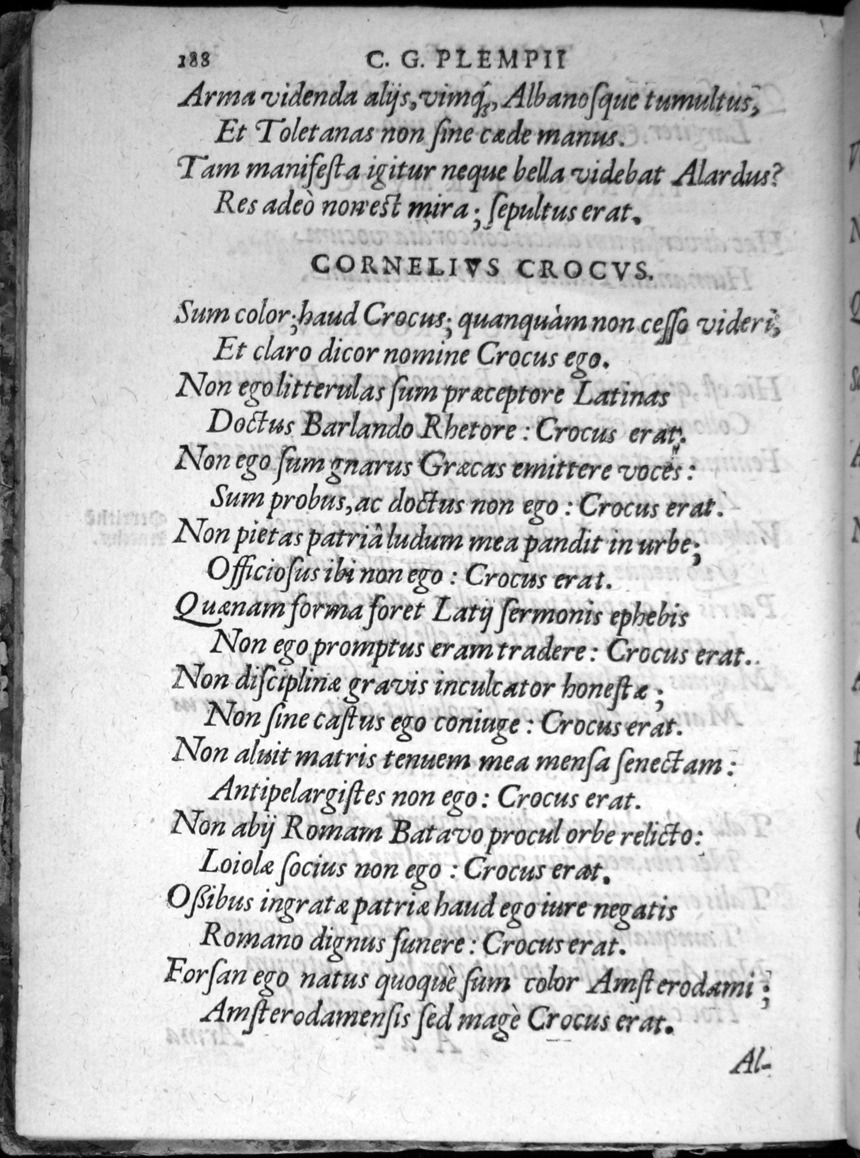 188 C. G. PLEMPII
Arma videnda alijs, vimq́;, Albanosque tumultus,
Et Toletanas non sine cæde manus.
Tam manifesta igitur neque bella videbat Alardus?
Res adeò non est mira; sepultus erat.
CORNELIVS CROCVS.
Sum color; haud Crocus; quanquàm non cesso videri,
Et claro dicor nomine Crocus ego.
Non ego litterulas sum præceptore Latinas
Doctus Barlando Rhetore : Crocus erat.
Non ego sum gnarus Græcas emittere voces :
Sum probus, ac doctus non ego : Crocus erat.
Non pietas patriâ ludum mea pandit in urbe;
Officiosus ibi non ego : Crocus erat.
Quænam forma foret Latij sermonis ephebis
Non ego promptus eram tradere : Crocus erat.
Non disciplinæ gravis inculcator honestæ ;
Non sine castus ego coniuge : Crocus erat.
Non aluit matris tenuem mea mensa senectam :
Antipelargistes non ego : Crocus erat.
Non abij Romam Batavo procul orbe relicto :
Loiolæ socius non ego : Crocus erat.
Ossibus ingratæ patriæ haud ego iure negatis
Romano dignus funere : Crocus erat.
Forsan ego natus quoquè sum color Amsterodami ;
Amsterodamensis sed magè Crocus erat.
Al-